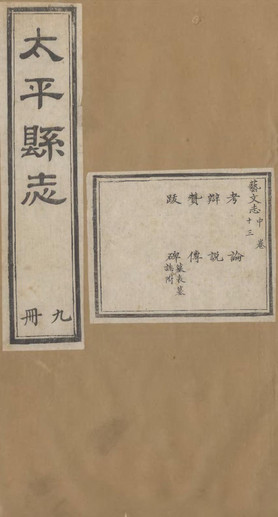 太平縣志
九冊
藝文志中 卷十三
考 論
辯 說
贊 傳
跋 碑 墓表墓誌附